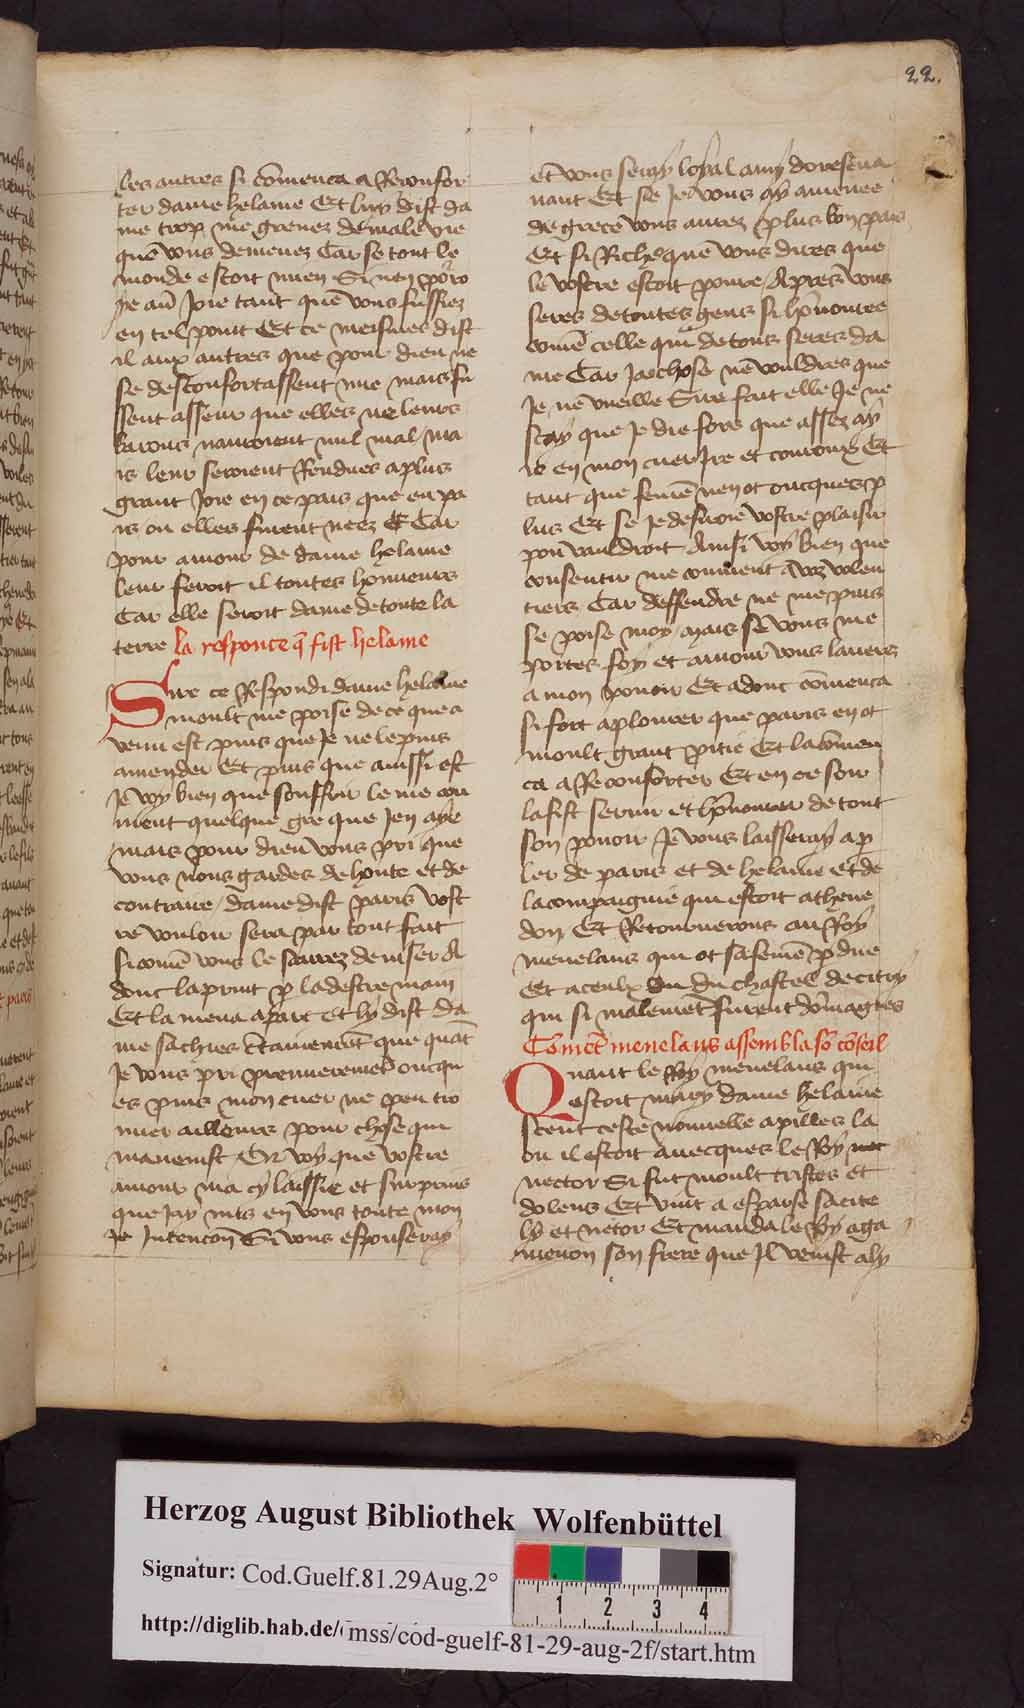 22.
les autres si cōmenca a Reconfor
ter dame helaine Et luy dist da
me trop me greuez de male vie
que vous demenez Car se tout le
monde estoit mien Si nen porro
ye au Joie tant que vous fussiez
en tel point Et ce meismes dist
il aux autres que pour dieu ne
se desconfortassent mie mais fu
ssent asseur que elles ne leurs
barons nauroient nul mal / ma
is leur seroient Rendues a plus
grant Joie en ce pais que en pa
is ou elles furent nees Et Car
pour amour de dame helaine
leur feroit il toutes honneurs
Car elle seroit dame de toute la
terre la responce q̄ fist helaine
Sire ce Respondi dame helaine
moult me poise de ce que a
venu est puis que Je ne le puis
amender Et puis que aussi est
Je voy bien que souffrir le me con
uient quelque gre que Jen aye
mais pour dieu vous pri que
vous nous gardes de honte et de
contraire / dame dist paris vost
re vouloir sera par tout fait
si comē vous le saurez deuiser A
dont la print p la destre main
Et la mena a part et ly dist da
me sachies c̄tainemēt que quāt
Je vous pri premieremēt oncqu
es puis mon cuer ne peu tro
nuer ailleurs pour chose qui
mauenist Or voy que vostre
amour ma cy laissie et surpris
que Jay mis en vous toute mon
Je Intencon Si vous espouseray
et vous seray loyal amy doresena
uant Et se Je vous ay amenee
de grece vous aurez plus bon pais
Et si Riche que vous dires que
le vostre estoit poure / Apres vous
seres de toutes gens si hōnouree
comē celle qui de tous seres da
me Car Ja chose nē vouldres que
Je nē vueille Sire fait elle Je ne
scay que Je die fors que assez ay
ie en mon cuer Ire et couroux Et
tant que femē nen ot oncques p
lus Et se Je desuoie vostre plaisir
pou vauldroit Ainsi voy bien que
consentir me conuient a voz volen
tiers Car deffendre ne me puis
se poise moy / mais se vous me
portes foy et amour vous laueres
a mon pouoir Et adonc cōmenca
si fort a plourer que paris en ot
moult grant pitie Et la cōmen
ca a Reconforter Et en ce soir
la fist seruir et hōnourer de tout
son pouoir Je vous laisseray a p
ler de paris et de helaine et de
la compaignie qui estoit a thene
don Et Retournerons au Roy
menelaus qui ot sa femē pdue
Et a ceulx du chastel de citry
qui si malemēt furent dōmagies
Comēt menelaus assembla sō cōseil
Quant le Roy menelaus qui
estoit mary dame helaine
sceut ceste nouuelle a pilles la
ou il estoit auecques le Roy
nector Si fut moult tristes et
dolens Et vint a esparse sa cite
ly et netor Et manda le Roy aga
menon son frere que Il venist a ly
Herzog August Bibliothek Wolfenbüttel
Signatur: Cod.Guelf.81.29Aug.2°
1 2 3 4
http://diglib.hab.de/mss/cod-guelf-81-29-aug-2f/start.htm